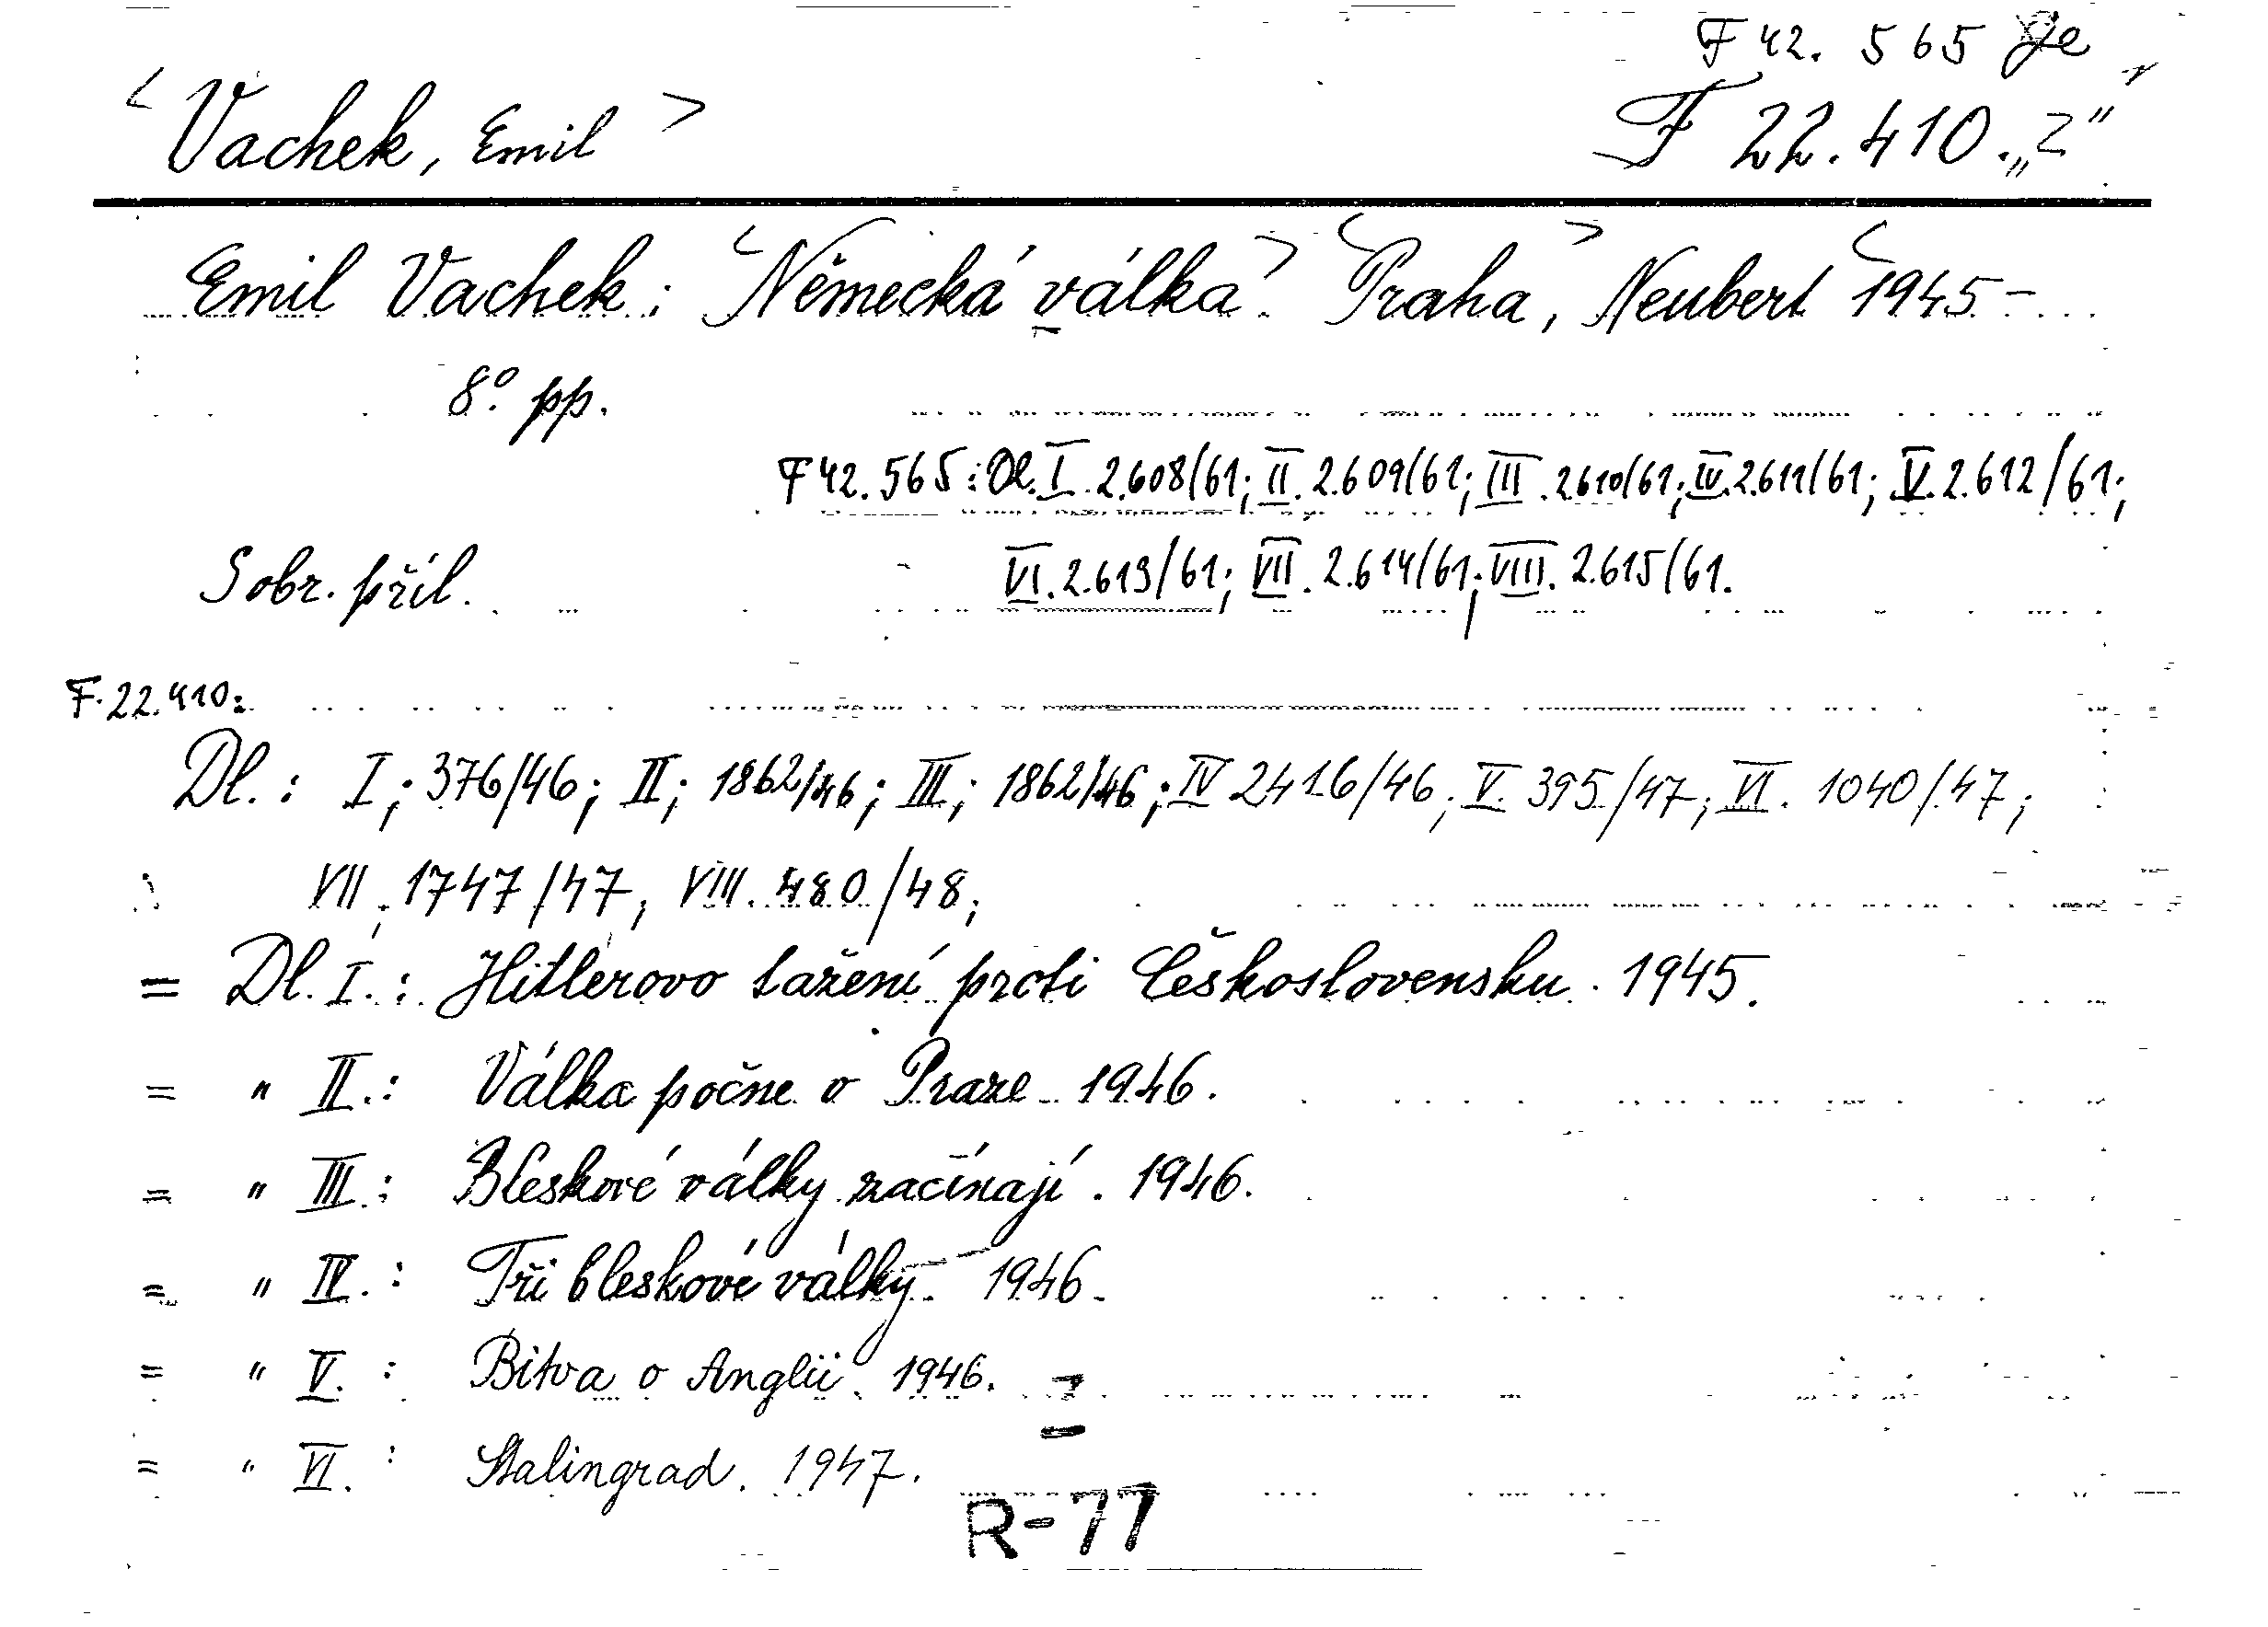 F 42. 565 Je
<Vachek, Emil> F 22.410.„Z"
Emil Vachek: <Německá válka.> <Praha,> Neubert <1945-
8° pp.
F 42.565: Dl. I. 2.608/61; II. 2.609/61; III. 2610/61; IV. 2.611/61; V. 2.612/61;
Sobr. příl. VI. 2.613/61; VII. 2.614/61; VIII. 2.615/61.
F. 22.410:
Dl.: I; 376/46; II; 1862/46; III; 1862/46; IV 2416/46; V. 395/47; VI. 1040/47;
VII. 1747/47, VIII. 480/48;
= Dl. I.: Hitlerovo tažení proti Československu. 1945.
= " II.: Válka počne o Praze 1946.
= " III.: Bleskové války začínají. 1946.
= " IV.: Tři bleskové války. 1946.
= " V. : Bitva o Anglii. 1946.
= " VI. : Stalingrad. 1947.
R-77